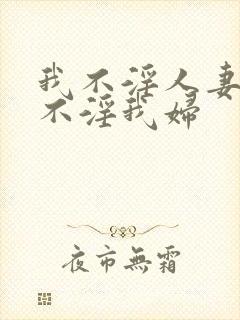 我不淫人妻
不淫我婦
夜市無霜